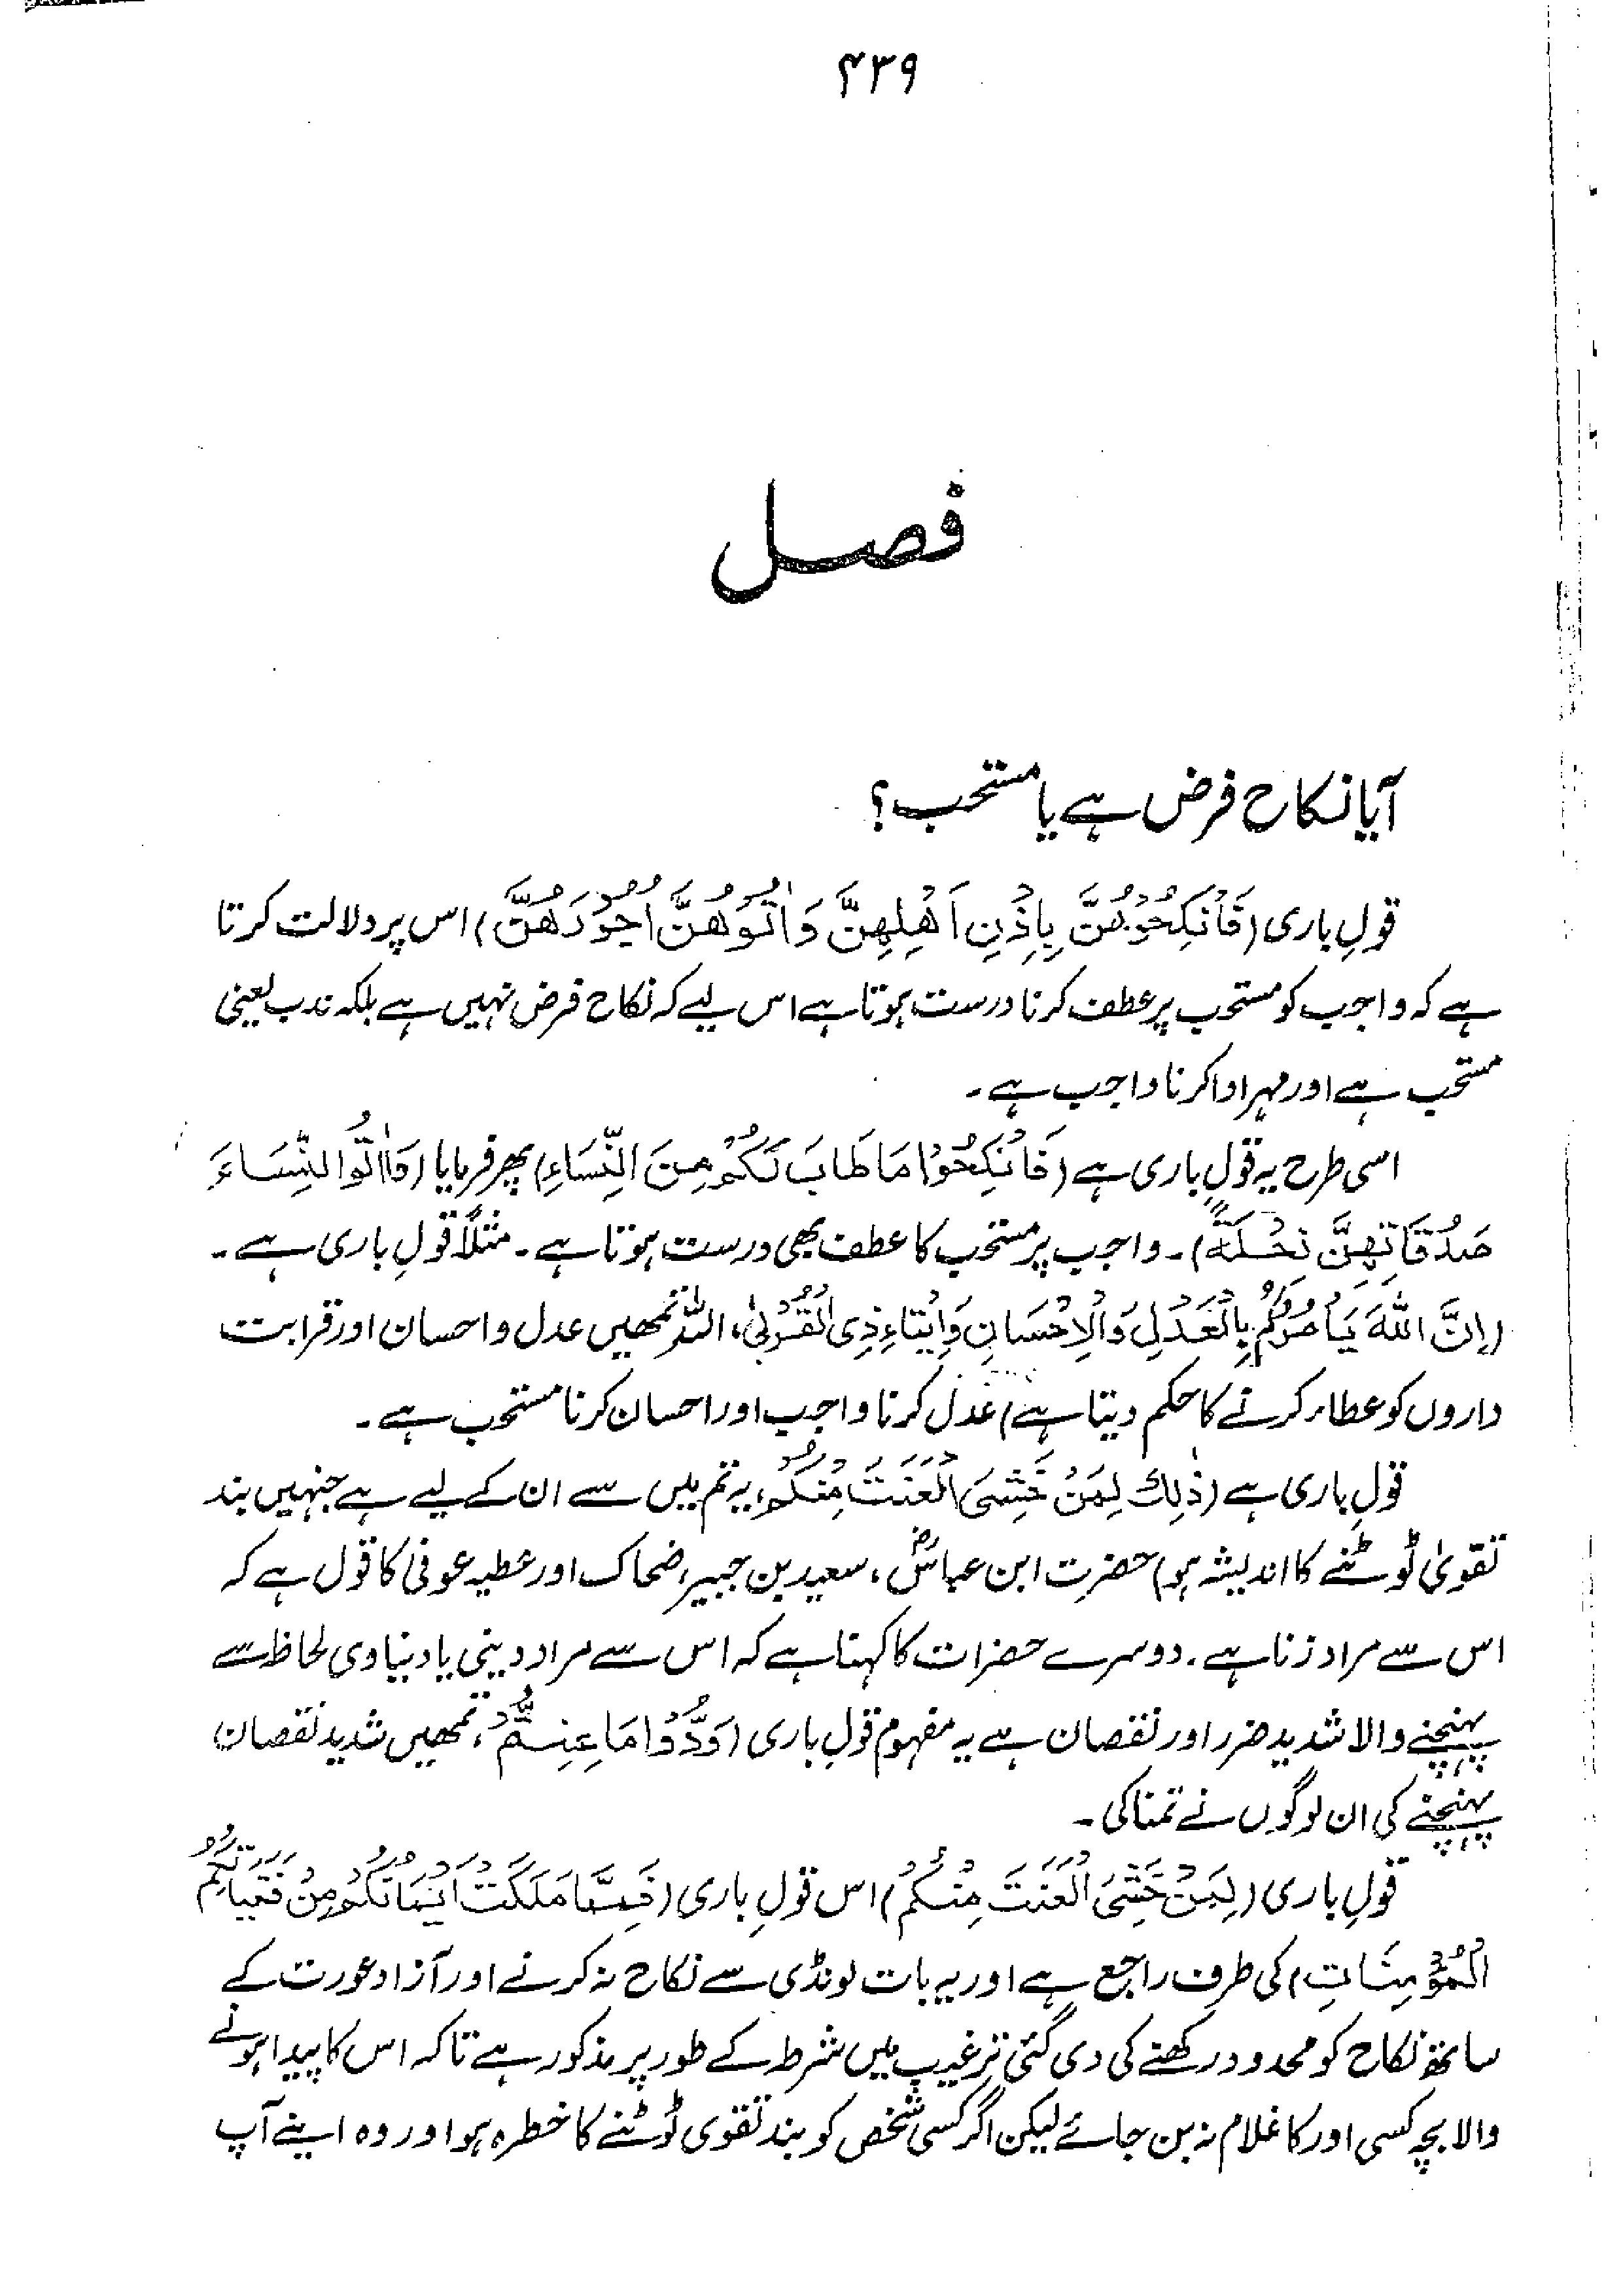 ۴۳۹
فصل
آیا نکاح فرض ہے یا مستحب؟
قولِ باری (فَانْكِحُوْهُنَّ بِاِذْنِ اَهْلِهِنَّ وَاٰتُوْهُنَّ اُجُوْرَهُنَّ) اس پر دلالت کرتا
ہے کہ واجب کو مستحب پر عطف کرنا درست ہوتا ہے اس لیے کہ نکاح فرض نہیں ہے بلکہ ندب یعنی
مستحب ہے اور مہر ادا کرنا واجب ہے۔
اسی طرح یہ قولِ باری ہے (فَانْكِحُوْا مَا طَابَ لَكُمْ مِنَ النِّسَاءِ) پھر فرمایا (وَاٰتُوا النِّسَاءَ
صَدُقَاتِهِنَّ نِحْلَةً)۔ واجب پر مستحب کا عطف بھی درست ہوتا ہے۔ مثلاً قولِ باری ہے۔
(اِنَّ اللّٰهَ يَأْمُرُكُمْ بِالْعَدْلِ وَالْاِحْسَانِ وَاِيْتَاءِ ذِى الْقُرْبٰى، اللہ تمھیں عدل و احسان اور قرابت
داروں کو عطاء کرنے کا حکم دیتا ہے) عدل کرنا واجب اور احسان کرنا مستحب ہے۔
قولِ باری ہے (ذٰلِكَ لِمَنْ خَشِىَ الْعَنَتَ مِنْكُمْ، یہ تم میں سے ان کے لیے ہے جنہیں بند
تقویٰ ٹوٹنے کا اندیشہ ہو) حضرت ابن عباسؓ، سعید بن جبیر، ضحاک اور عطیہ عوفی کا قول ہے کہ
اس سے مراد زنا ہے۔ دوسرے حضرات کا کہنا ہے کہ اس سے مراد دینی یا دنیاوی لحاظ سے
پہنچنے والا شدید ضرر اور نقصان ہے یہ مفہوم قولِ باری (وَدُّوْا مَا عَنِتُّمْ، تمھیں شدید نقصان
پہنچنے کی ان لوگوں نے تمنا کی۔
قولِ باری (لِمَنْ خَشِىَ الْعَنَتَ مِنْكُمْ) اس قولِ باری (فَمِمَّا مَلَكَتْ اَيْمَانُكُمْ مِنْ فَتَيَاتِكُمُ
الْمُؤْمِنَاتِ) کی طرف راجع ہے اور یہ بات لونڈی سے نکاح نہ کرنے اور آزاد عورت کے
ساتھ نکاح کو محدود رکھنے کی دی گئی ترغیب میں شرط کے طور پر مذکور ہے تاکہ اس کا پیدا ہونے
والا بچہ کسی اور کا غلام نہ بن جائے لیکن اگر کسی شخص کو بند تقوی ٹوٹنے کا خطرہ ہو اور وہ اپنے آپ